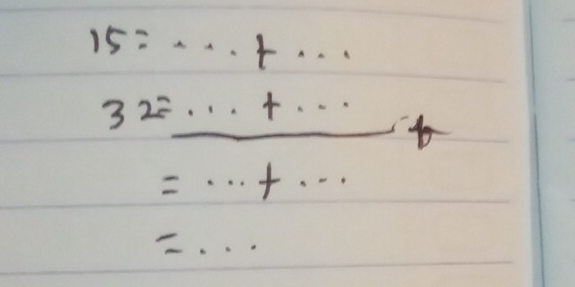 15 = ... + ...
32 = ... + ...
+
= ... + ...
= ...